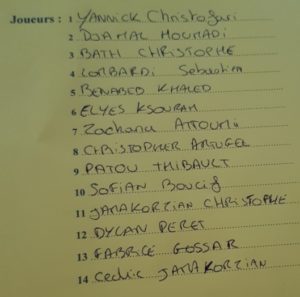 Joueurs : 1 YANNICK Christofari
2 DJAMAL HOUMADI
3 BATH CHRISTOPHE
4 LOMBARDI Sebastien
5 BENABED KHALED
6 ELYES KSOURAH
7 Zacharia ATTOUMI
8 CHRISTOPHER ARTUFEL
9 PATOU THIBAULT
10 SOFIAN BOUCIF
11 JAMAKORZIAN CHRISTOPHE
12 DYLAN PERET
13 FABRICE GOSSAR
14 Cedric JAMAKORZIAN